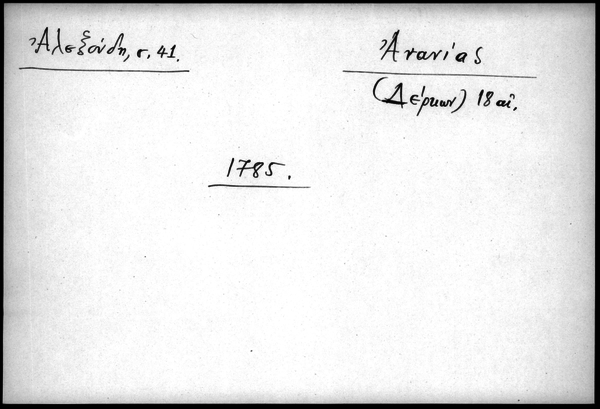 Ἀλεξούδη, σ. 41.
Ἀνανίας
(Δέρκων) 18 αἰ.
1785.